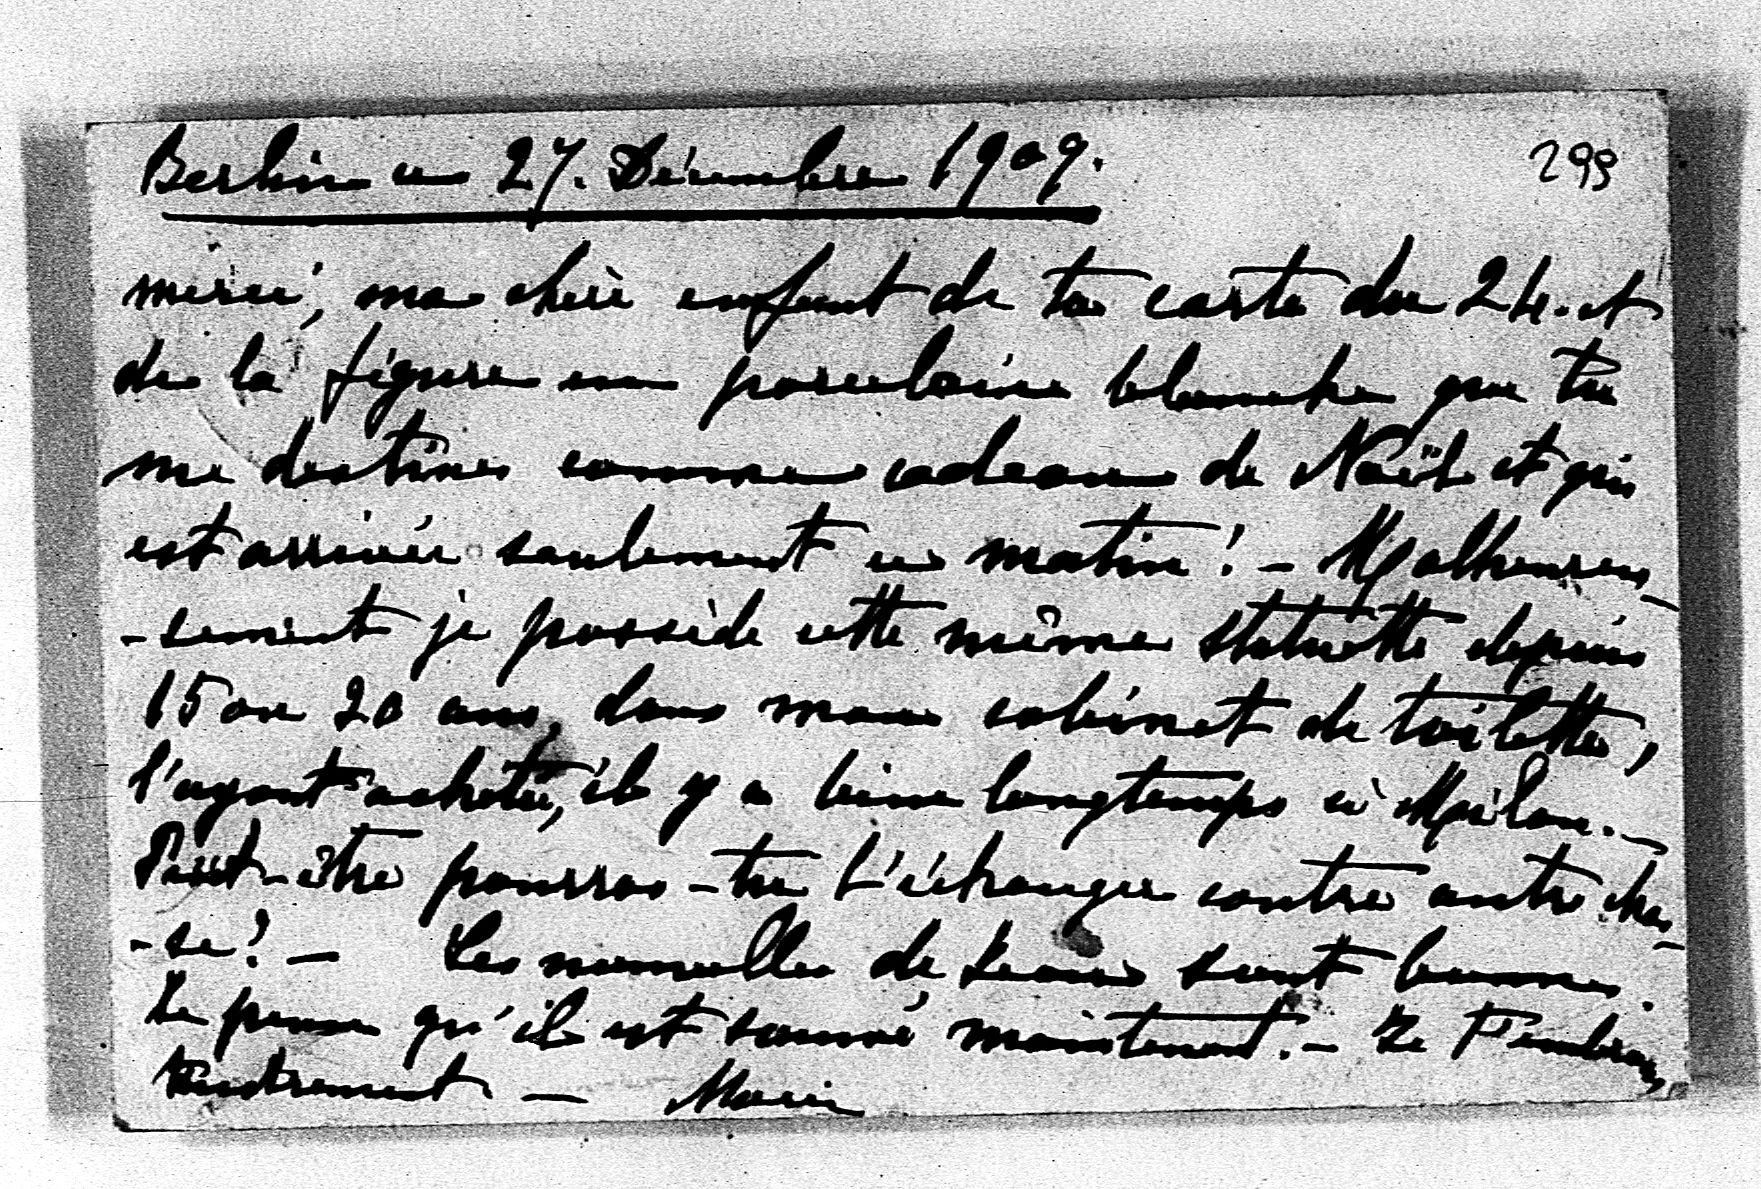 Berlin ce 27. Décembre 1909.
299
merci, ma chère enfant de ta carte du 24. et
de la figure en porcelaine blanche que tu
me destines comme cadeau de Noël et qui
est arrivée seulement ce matin! - Malheureu-
-sement je possède cette même statuette depuis
15 ou 20 ans, dans mon cabinet de toilette,
l'ayant acheté, il y a bien longtemps à Milan. -
Peut-être pourras-tu l'échanger contre autre cho-
-se? - Les nouvelles de sont bonnes.
Je pense qu'il est sauvé maintenant. - Je t'embrasse
tendrement - Marie